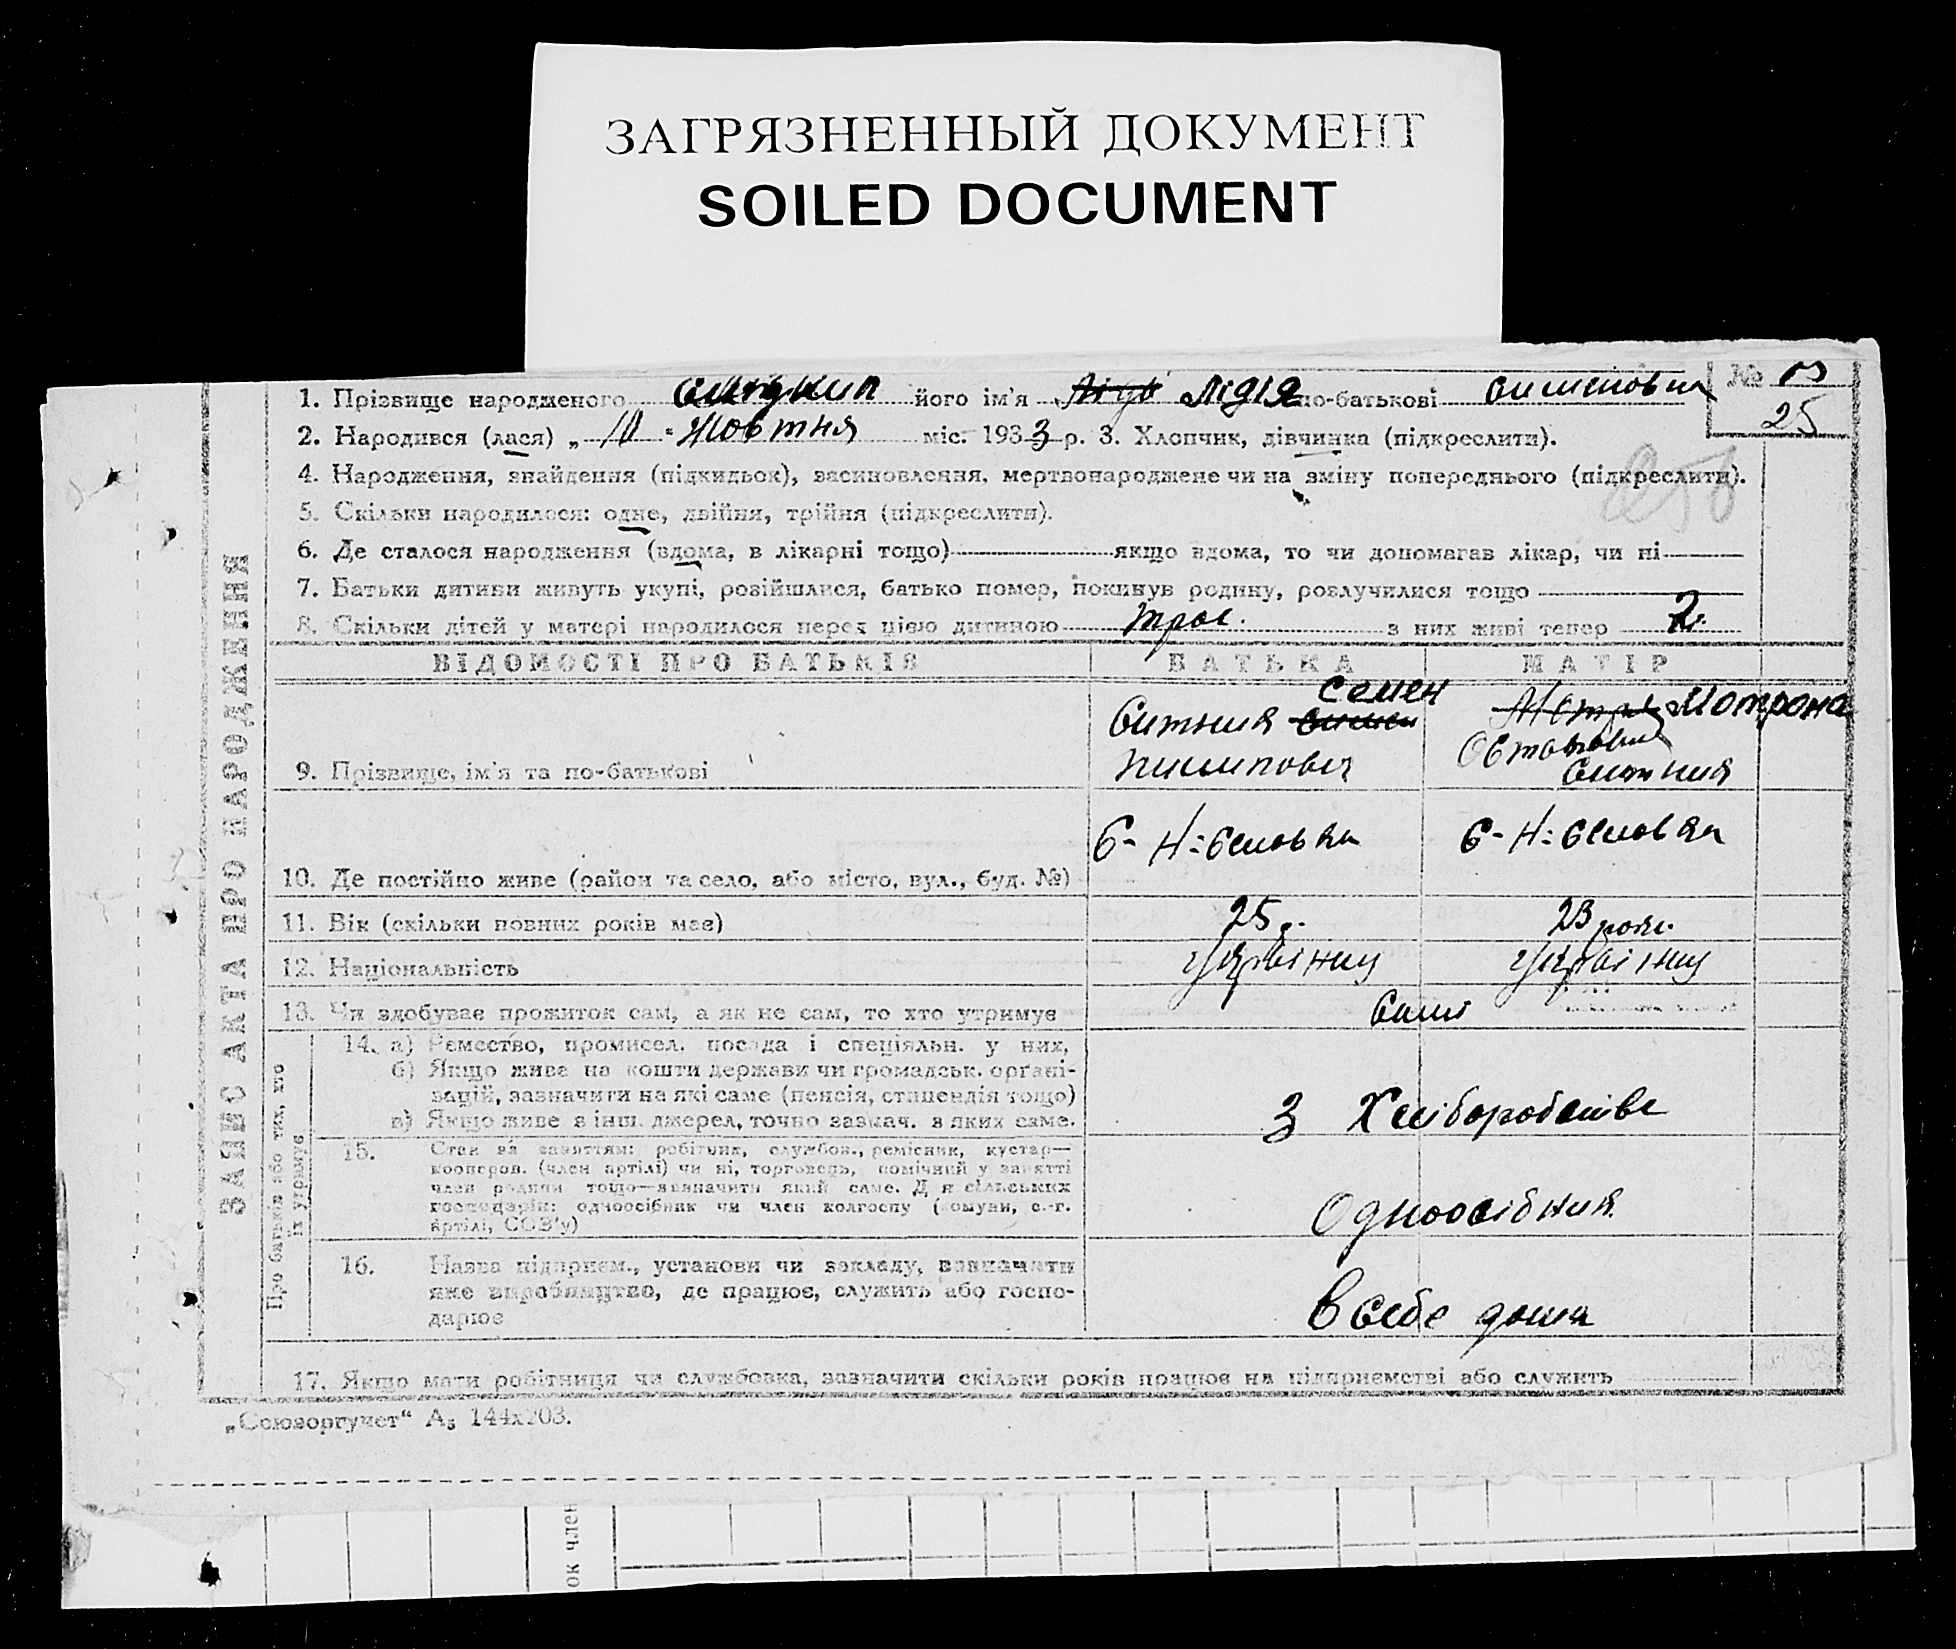 ЗАГРЯЗНЕННЫЙ ДОКУМЕНТ
SOILED DOCUMENT
№
25
ЗАПИС АКТА ПРО НАРОДЖЕННЯ
1. Прізвище народженого його ім'я Лідія по-батькові
2. Народився (лася) „ 10 " Жовтня міс. 1933 р. 3. Хлопчик, дівчинка (підкреслити).
4. Народження, знайдення (підкидьок), засиновлення, мертвонароджене чи на зміну попереднього (підкреслити).
5. Скільки народилося: одне, двійня, трійня (підкреслити).
6. Де сталося народження (вдома, в лікарні тощо) якщо вдома, то чи допомагав лікар, чи ні
7. Батьки дитини живуть укупі, розійшлися, батько помер, покинув родину, розлучилися тощо
8. Скільки дітей у матері народилося перед цією дитиною троє. з них живі тепер 2.
ВІДОМОСТІ ПРО БАТЬКІВ БАТЬКА МАТІР
Семен
Ситник Мотрона
9. Прізвище, ім'я та по-батькові Пилипович Ситник
10. Де постійно живе (район та село, або місто, вул., буд. №)
11. Вік (скільки повних років має) 25 р. 23 роки.
12. Національність Українц Українц
13. Чи здобуває прожиток сам, а як не сам, то хто утримує Самі
Про батьків або тих, хто їх утримує
14. а) Ремество, промисел. посада і спеціяльн. у них,
б) Якщо живе на кошти держави чи громадськ. органі-
зацій, зазначити на які саме (пенсія, стипендія тощо)
в) Якщо живе з інш. джерел, точно зазнач. з яких саме.
З Хліборобства
15. Стан за заняттям: робітник, службов., ремісник, кустар—
кооперов. (член артілі) чи ні, торговець, помічний у занятті
член родини тощо—зазначити який саме. Для сільських
господарів: одноосібник чи член колгоспу (комуни, с.-г.
артілі, СОЗ'у)
Одноосібник
16. Назва підприєм., установи чи закладу, зазначити
яке виробництво, де працює, служить або госпо-
дарює
В себе дома
17. Якщо мати робітниця чи службовка, зазначити скільки років працює на підприємстві або служить
„Союзоргучет“ А₅ 144х203.
ок член